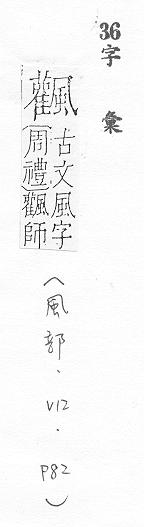 36字彙
飌
古文風字
〔周禮〕飌師
(風部.V12.P82)